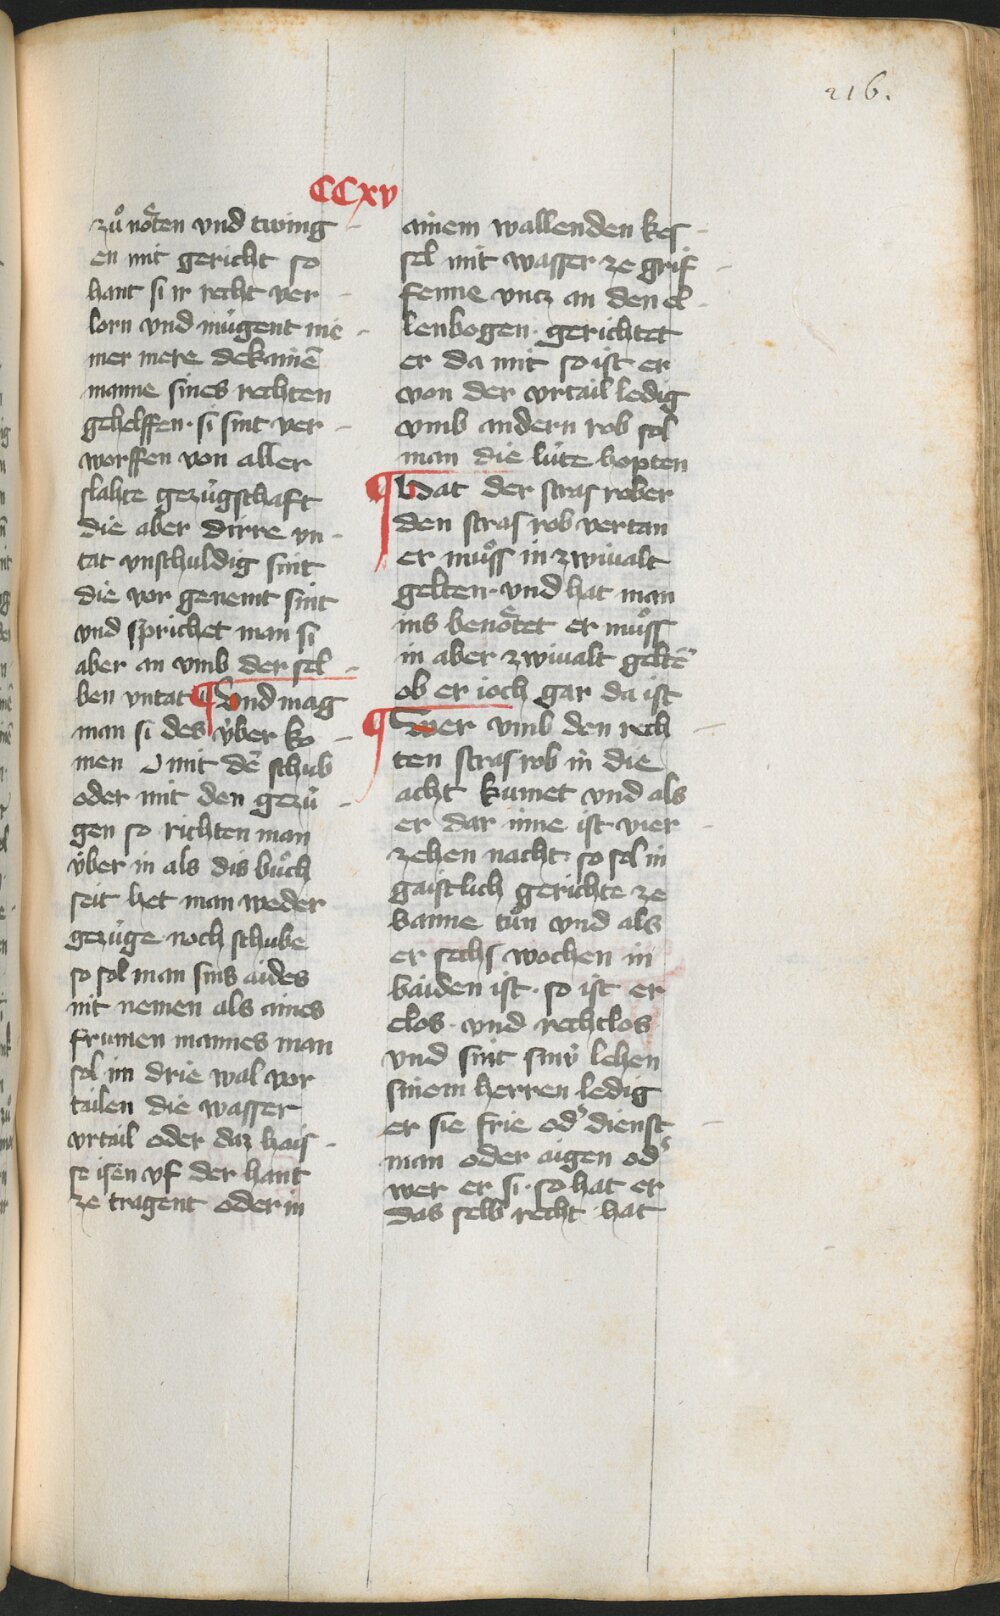 216.
CCxv
zuͦ noͤten vnd twing
en mit gericht so
hant si ir recht ver
lorn vnd muͤgent nie
mer mere dekainē
manne sines rechten
gehelffen · si sint ver
worffen von aller
slahte gezuͤgschaft
die aber dirre vn
tat vnschuldig sint
die vor genemt sint
vnd sprichet man si
aber an vmb der sel
ben vntat ¶ Vnd mag
man si des v̈ber ko
men mit dē schub
oder mit den gezuͤ
gen so richten man
v̈ber in als dis buͦch
seit het man weder
gezuͤge noch schube
so sol man sins aides
nit nemen als aines
frumen mannes man
sol im drie wal vor
tailen die wasser
vrtail oder daz hais
se isen vf der hant
ze tragent oder in
ainem wallenden kes
sel mit wasser ze grif
fenne vncz an den el
lenbogen · gerichtet
er da mit so ist er
von der vrtail ledig
vmb andern rob sol
man die luͤte hopten
¶ Hat der stras rober
den stras rob vertan
er muͦss in zwiualt
gelten · vnd hat man
ins benoͤtet er muͦss
in aber zwiualt geltē
ob er ioch gar da ist
¶ Swer vmb den rech
ten stras rob in die
acht kumet vnd als
er dar inne ist vier
zehen nacht · so sol in
gaistlich gerichte ze
banne tuͦn vnd als
er sechs wochen in
baiden ist · so ist er
elos · vnd rechtlos
vnd sint sinv̈ lehen
sinem herren ledig
er sie frie od' dienst
man oder aigen od'
wer er si · so hat er
das selb recht hat